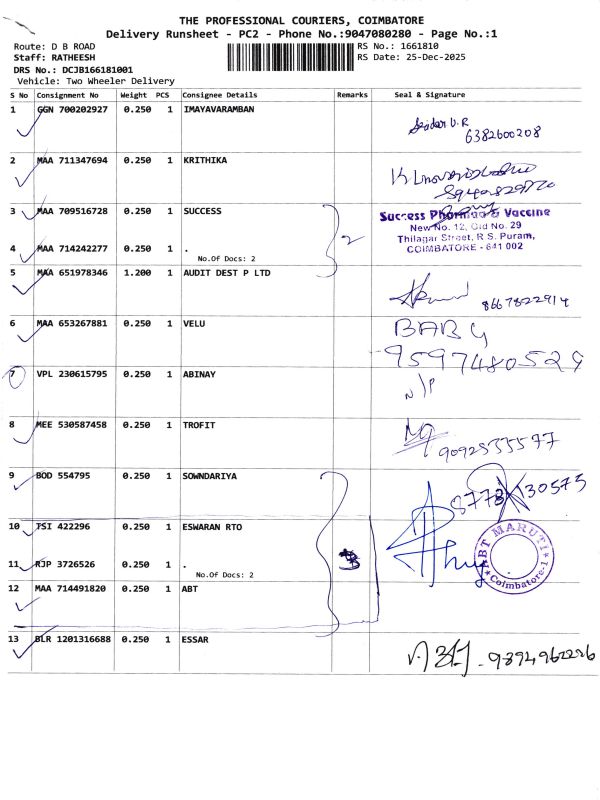 THE PROFESSIONAL COURIERS, COIMBATORE
Delivery Runsheet - PC2 - Phone No.:9047080280 - Page No.:1
Route: D B ROAD
RS No.: 1661810
Staff: RATHEESH
RS Date: 25-Dec-2025
DRS No.: DCJB166181001
Vehicle: Two Wheeler Delivery
S No Consignment No Weight PCS Consignee Details Remarks Seal & Signature
1 GGN 700202927 0.250 1 IMAYAVARAMBAN
6382600208
2 MAA 711347694 0.250 1 KRITHIKA
3 MAA 709516728 0.250 1 SUCCESS
2
Success Pharma & Vaccine
New No. 12, Old No. 29
Thilagar Street, R S. Puram,
COIMBATORE - 641 002
4 MAA 714242277 0.250 1 .
No.Of Docs: 2
5 MAA 651978346 1.200 1 AUDIT DEST P LTD
8667822914
6 MAA 653267881 0.250 1 VELU
BABY
9597480529
7 VPL 230615795 0.250 1 ABINAY
N/P
8 MEE 530587458 0.250 1 TROFIT
9092535577
9 BOD 554795 0.250 1 SOWNDARIYA
10 TSI 422296 0.250 1 ESWARAN RTO
11 RJP 3726526 0.250 1 .
No.Of Docs: 2
ABT MARUTI
Coimbatore-1
12 MAA 714491820 0.250 1 ABT
13 BLR 1201316688 0.250 1 ESSAR
9894962226